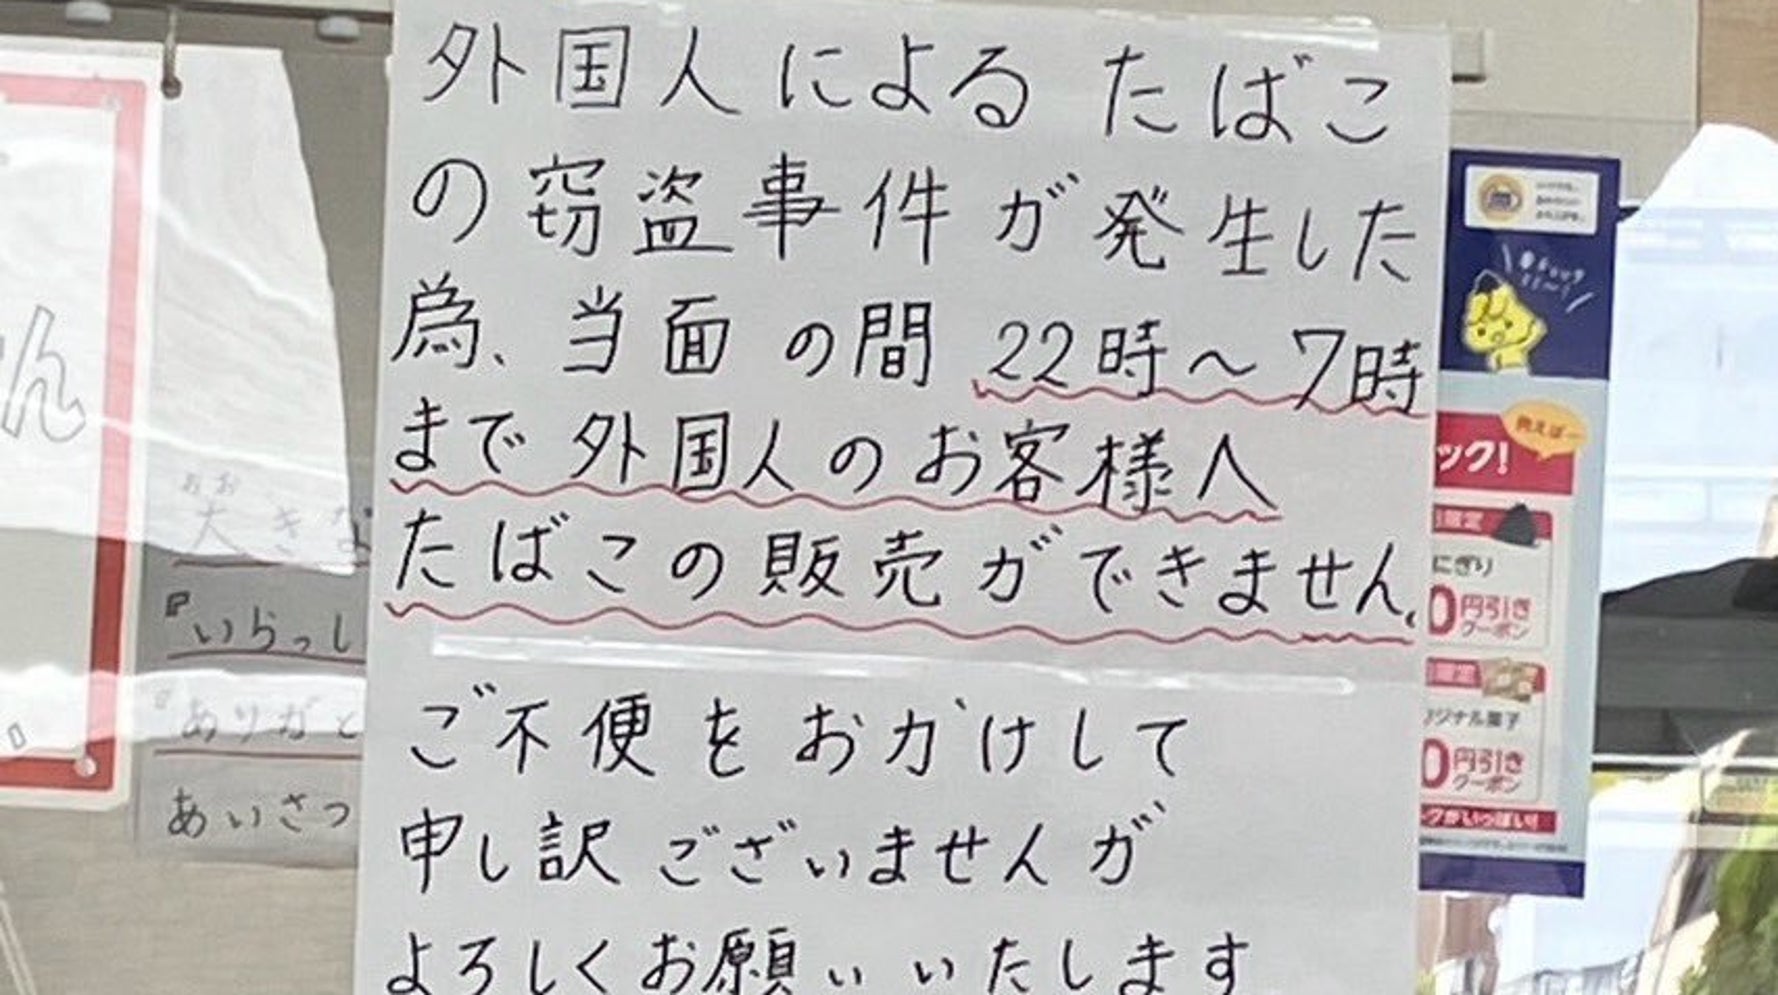 外国人によるたばこ
の窃盗事件が発生した
為、当面の間22時～7時
まで外国人のお客様へ
たばこの販売ができません。
ご不便をおかけして
申し訳ございませんが
よろしくお願いいたします
ん
おお
大きな
『いらっし
『ありがと
あいさつ
例えば…
ック!
限定
にぎり
0円引き
クーポン
限定
リジナル菓子
0円引き
クーポン
クがいっぱい!